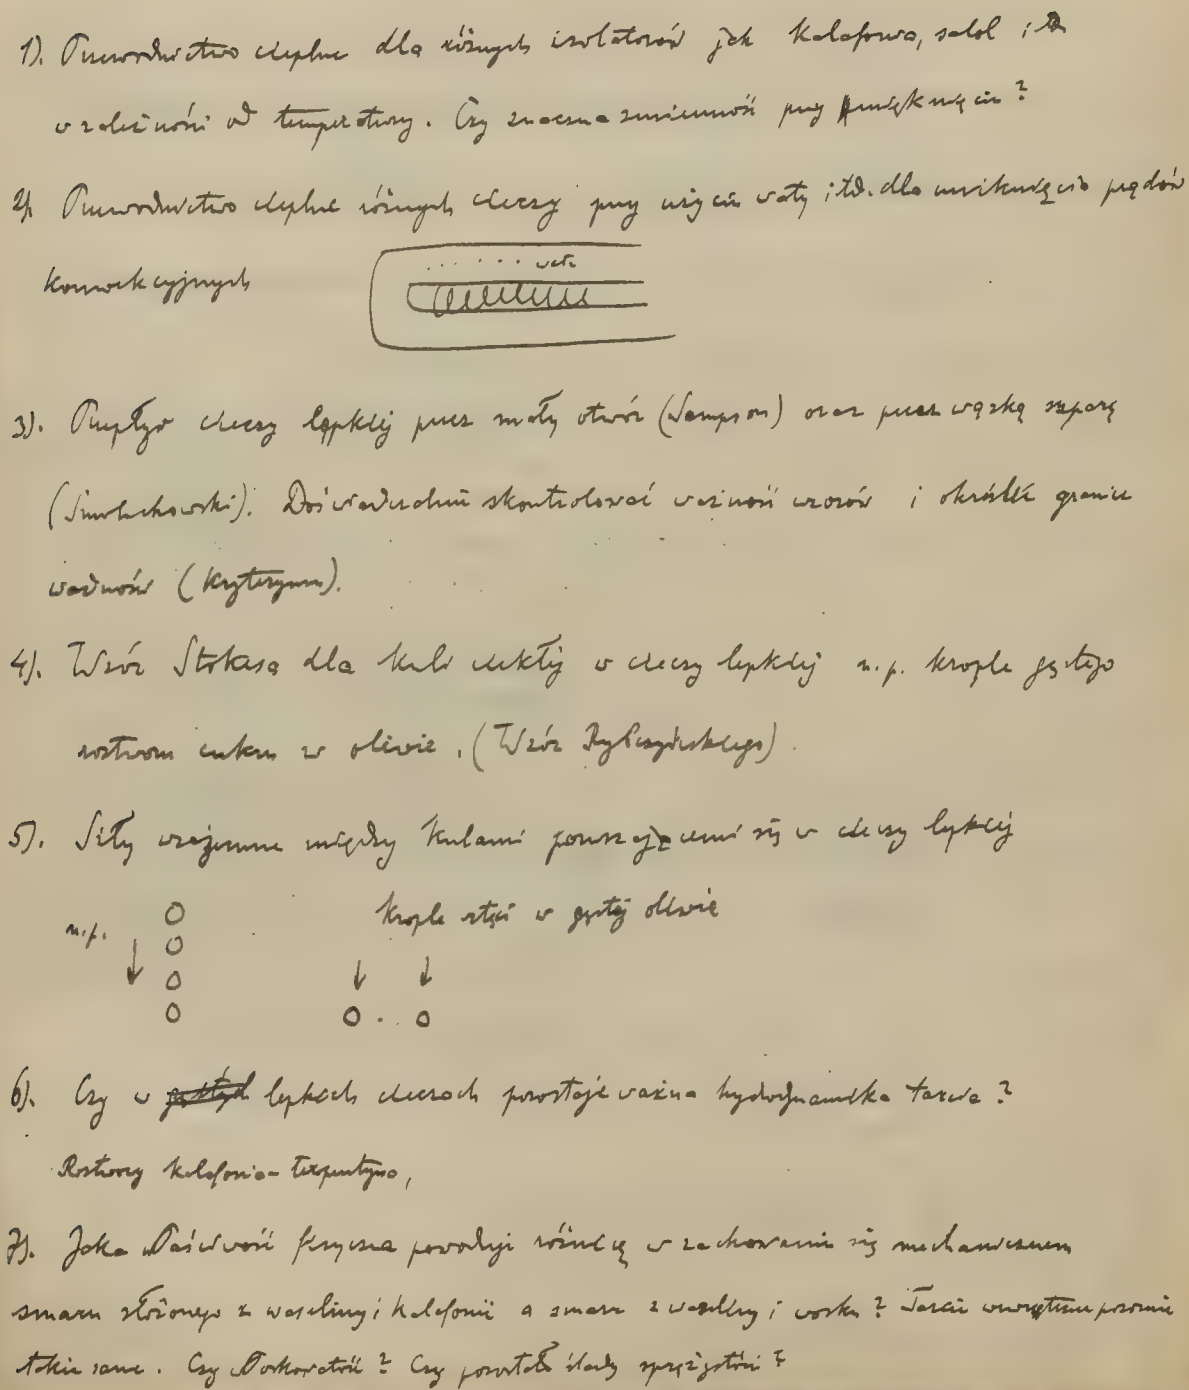 1). Przewodnictwo cieplne dla różnych izolatorów jak Kalafonia, salol itd
w zależności od temperatury. Czy znaczna zmienność przy zmięknięciu?
2). Przewodnictwo cieplne różnych cieczy przy użyciu waty itd. dla uniknięcia prądów
konwekcyjnych
wata
3). Przepływ cieczy lepkiej przez mały otwór (Sampson) oraz przez wązką szparę
(Smoluchowski). Doświadczalnie skontrolować ważność wzorów i określić granice
ważności (Kryteryum).
4). Wzór Stokesa dla kuli ciekłej w cieczy lepkiej n.p. krople gęstego
roztworu cukru w oliwie. (Wzór Rybczyńskiego).
5). Siły wzajemne między Kulami poruszającemi się w cieczy lepkiej
n.p. Krople rtęci w gęstej oliwie
6). Czy w lepkich cieczach pozostaje ważna hydrodynamika tarcia?
Roztwory kalafonia-terpentyna,
7). Jaka własność fizyczna powoduje różnicę w zachowaniu się mechanicznem
smaru złożonego z waseliny i kalafonii a smaru z waseliny i wosku? Tarcie wewnętrzne pozornie
takie same. Czy Włoskowatość? Czy pozostałe ślady sprężystości?